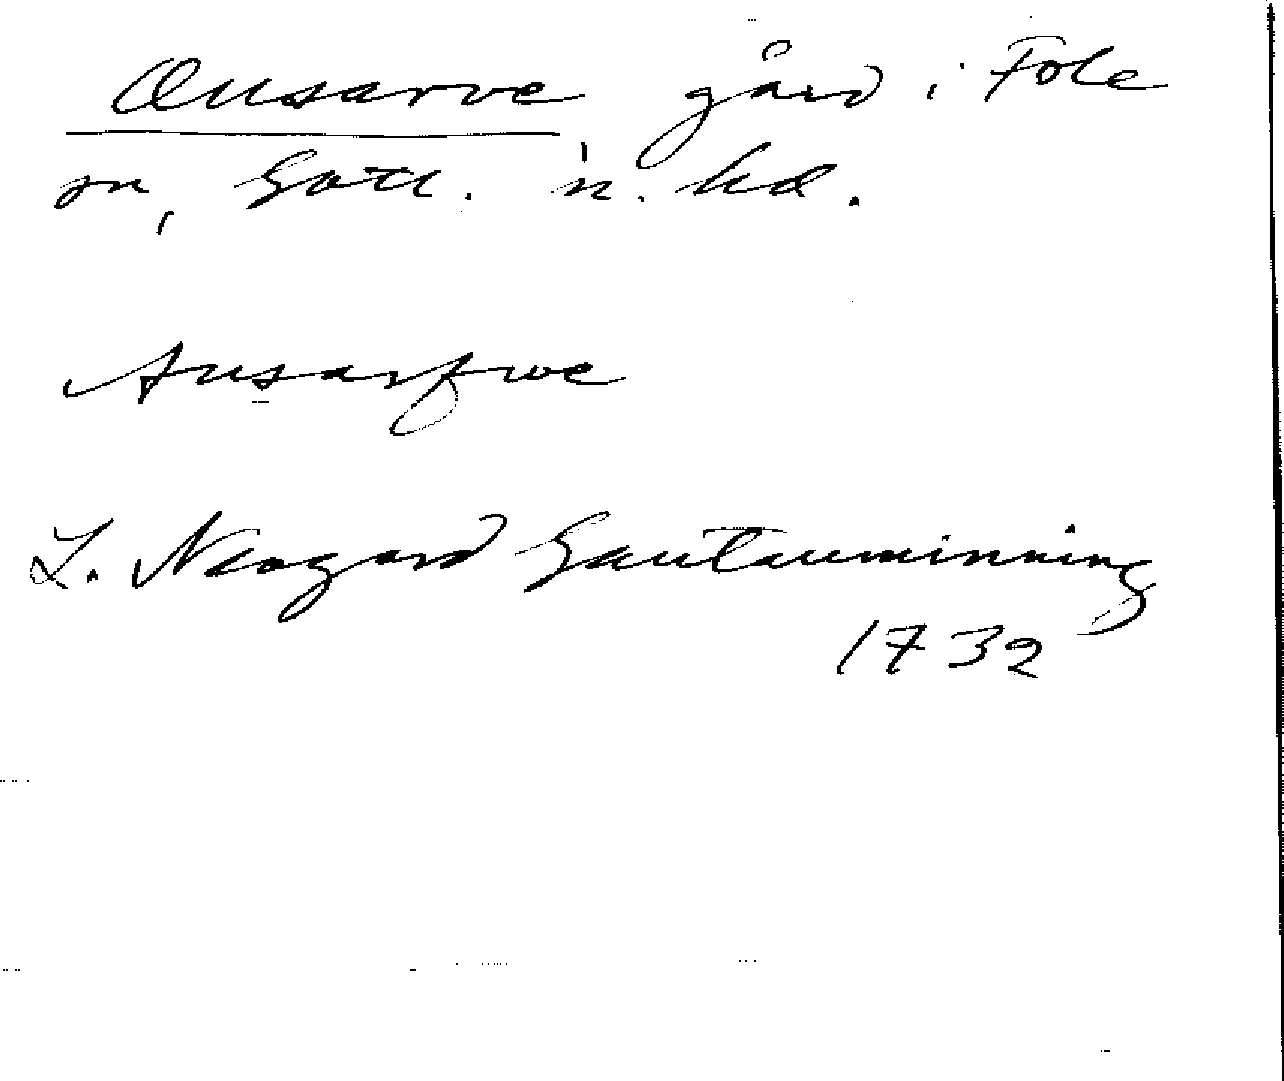 Ausarve gård i Fole
sn, Gotl. n. hd.
Ausarfwe
L. Neogard Gautauminning
1732